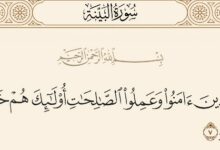 سُورَةُ البَيِّنَةِ
بِسْمِ اللَّهِ الرَّحْمَنِ الرَّحِيمِ
ءَامَنُوا۟ وَعَمِلُوا۟ ٱلصَّٰلِحَٰتِ أُو۟لَٰٓئِكَ هُمْ
٧